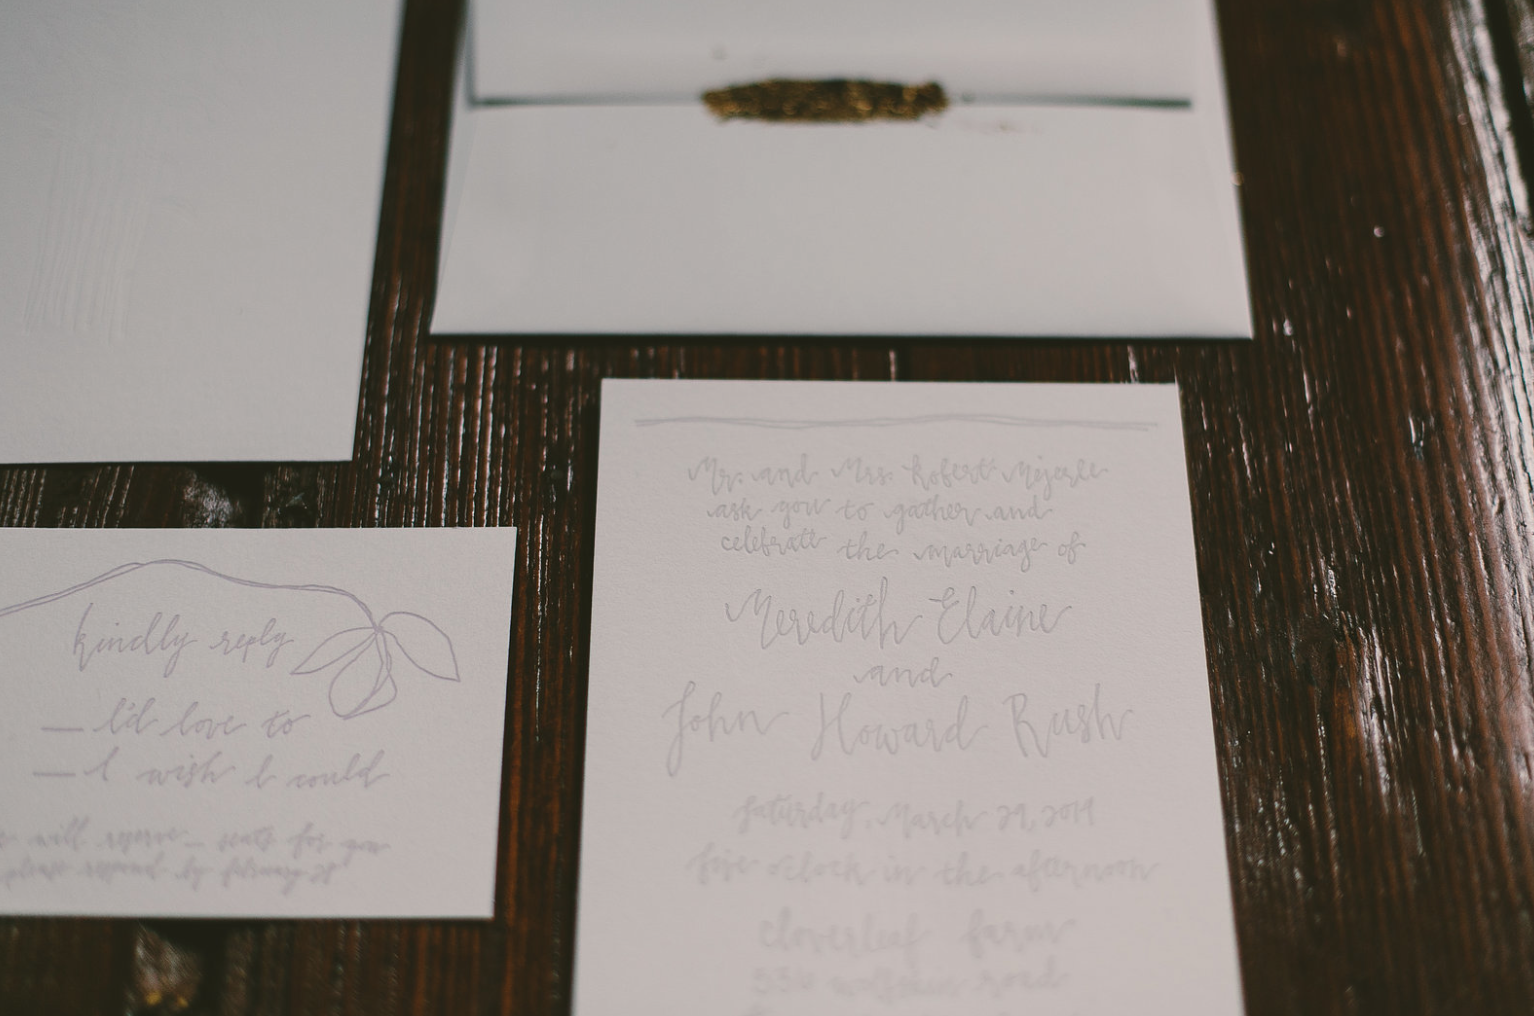 kindly reply
I'd love to
I wish I could
will reserve seats for you
please respond by february 28
Mr. and Mrs. Robert
ask you to gather and
celebrate the marriage of
Meredith Elaine
and
John Howard Rush
Saturday, March 29, 2014
five o'clock in the afternoon
cloverleaf farm
road